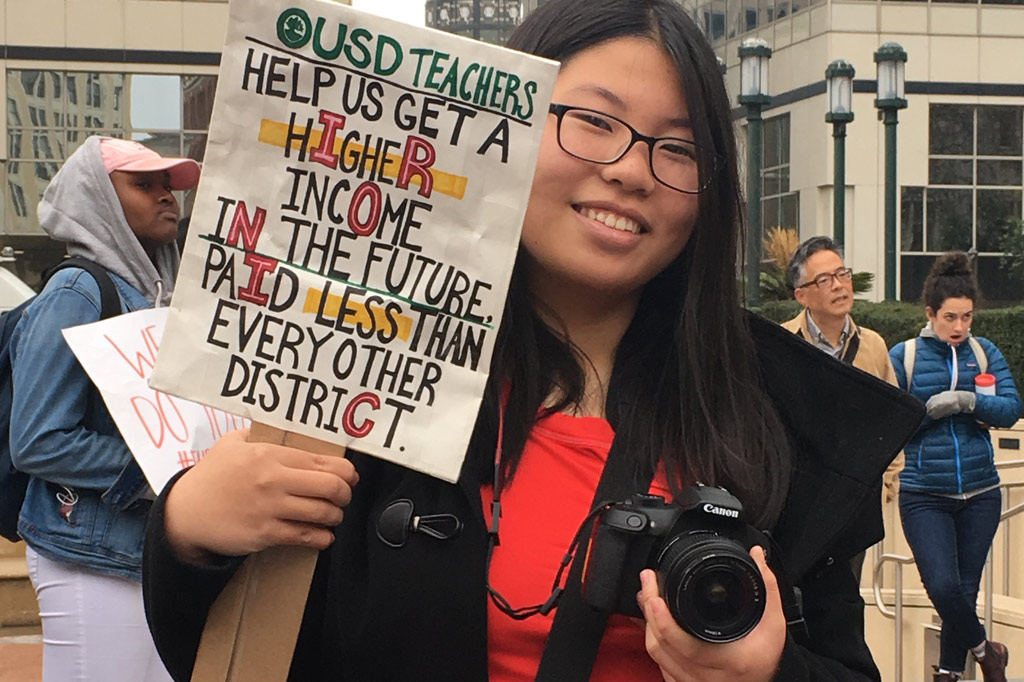 OUSD TEACHERS
HELP US GET A
HIGHER
INCOME
IN THE FUTURE.
PAID LESS THAN
EVERY OTHER
DISTRICT.
WE
DO
Canon